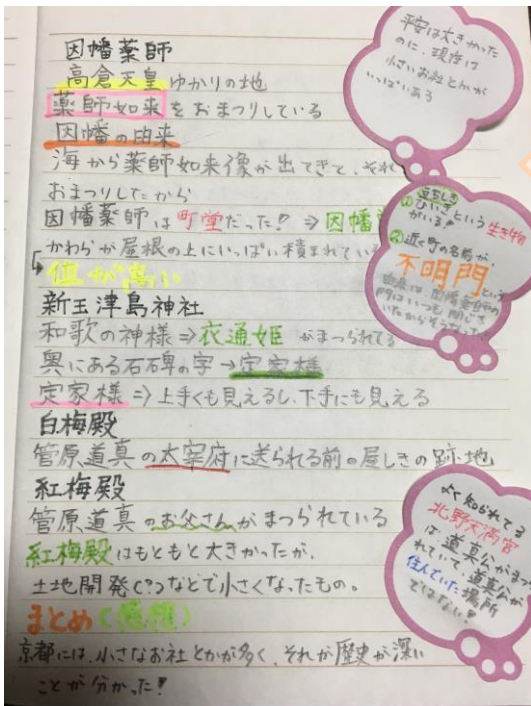 因幡薬師
高倉天皇ゆかりの地
薬師如来をおまつりしている
因幡の由来
海から薬師如来像が出てきて、それ
おまつりしたから
因幡薬師は町堂だった! ⇒因幡
かわらが屋根の上にいっぱい積まれている
↳値が高い
新玉津島神社
和歌の神様⇒衣通姫がまつられてる
奥にある石碑の字→定家様
定家様⇒上手くも見えるし、下手にも見える
白梅殿
管原道真の太宰府に送られる前の屋しきの跡地
紅梅殿
管原道真のお父さんがまつられている
紅梅殿はもともと大きかったが、
土地開発(?)などで小さくなったもの。
まとめ(感想)
京都には、小さなお社とかが多く、それが歴史が深い
ことが分かった!
平安は大きかった
のに、現在は
小さいお社とかが
いっぱいある
① という生き物
がいる!
② 近く町の名前が
不明門という
門はいつも閉じて
いたからそうなった
よく知られてる
北野天満宮
は、道真公がまつ
られていて、道真公が
住んでいた場所
ではない!